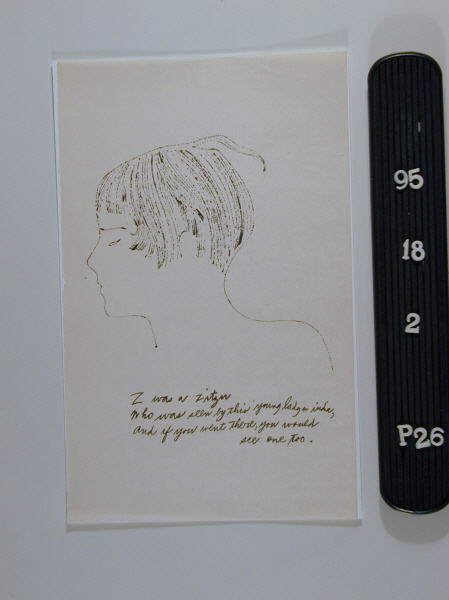 Z was a zitzu
Who was seen by this young lady in inda,
And if you went there, you would
see one, too.
95
18
2
P26